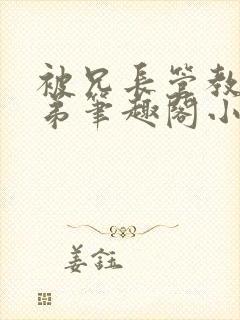 被兄长管教
弟筆趣阁小
姜鈺